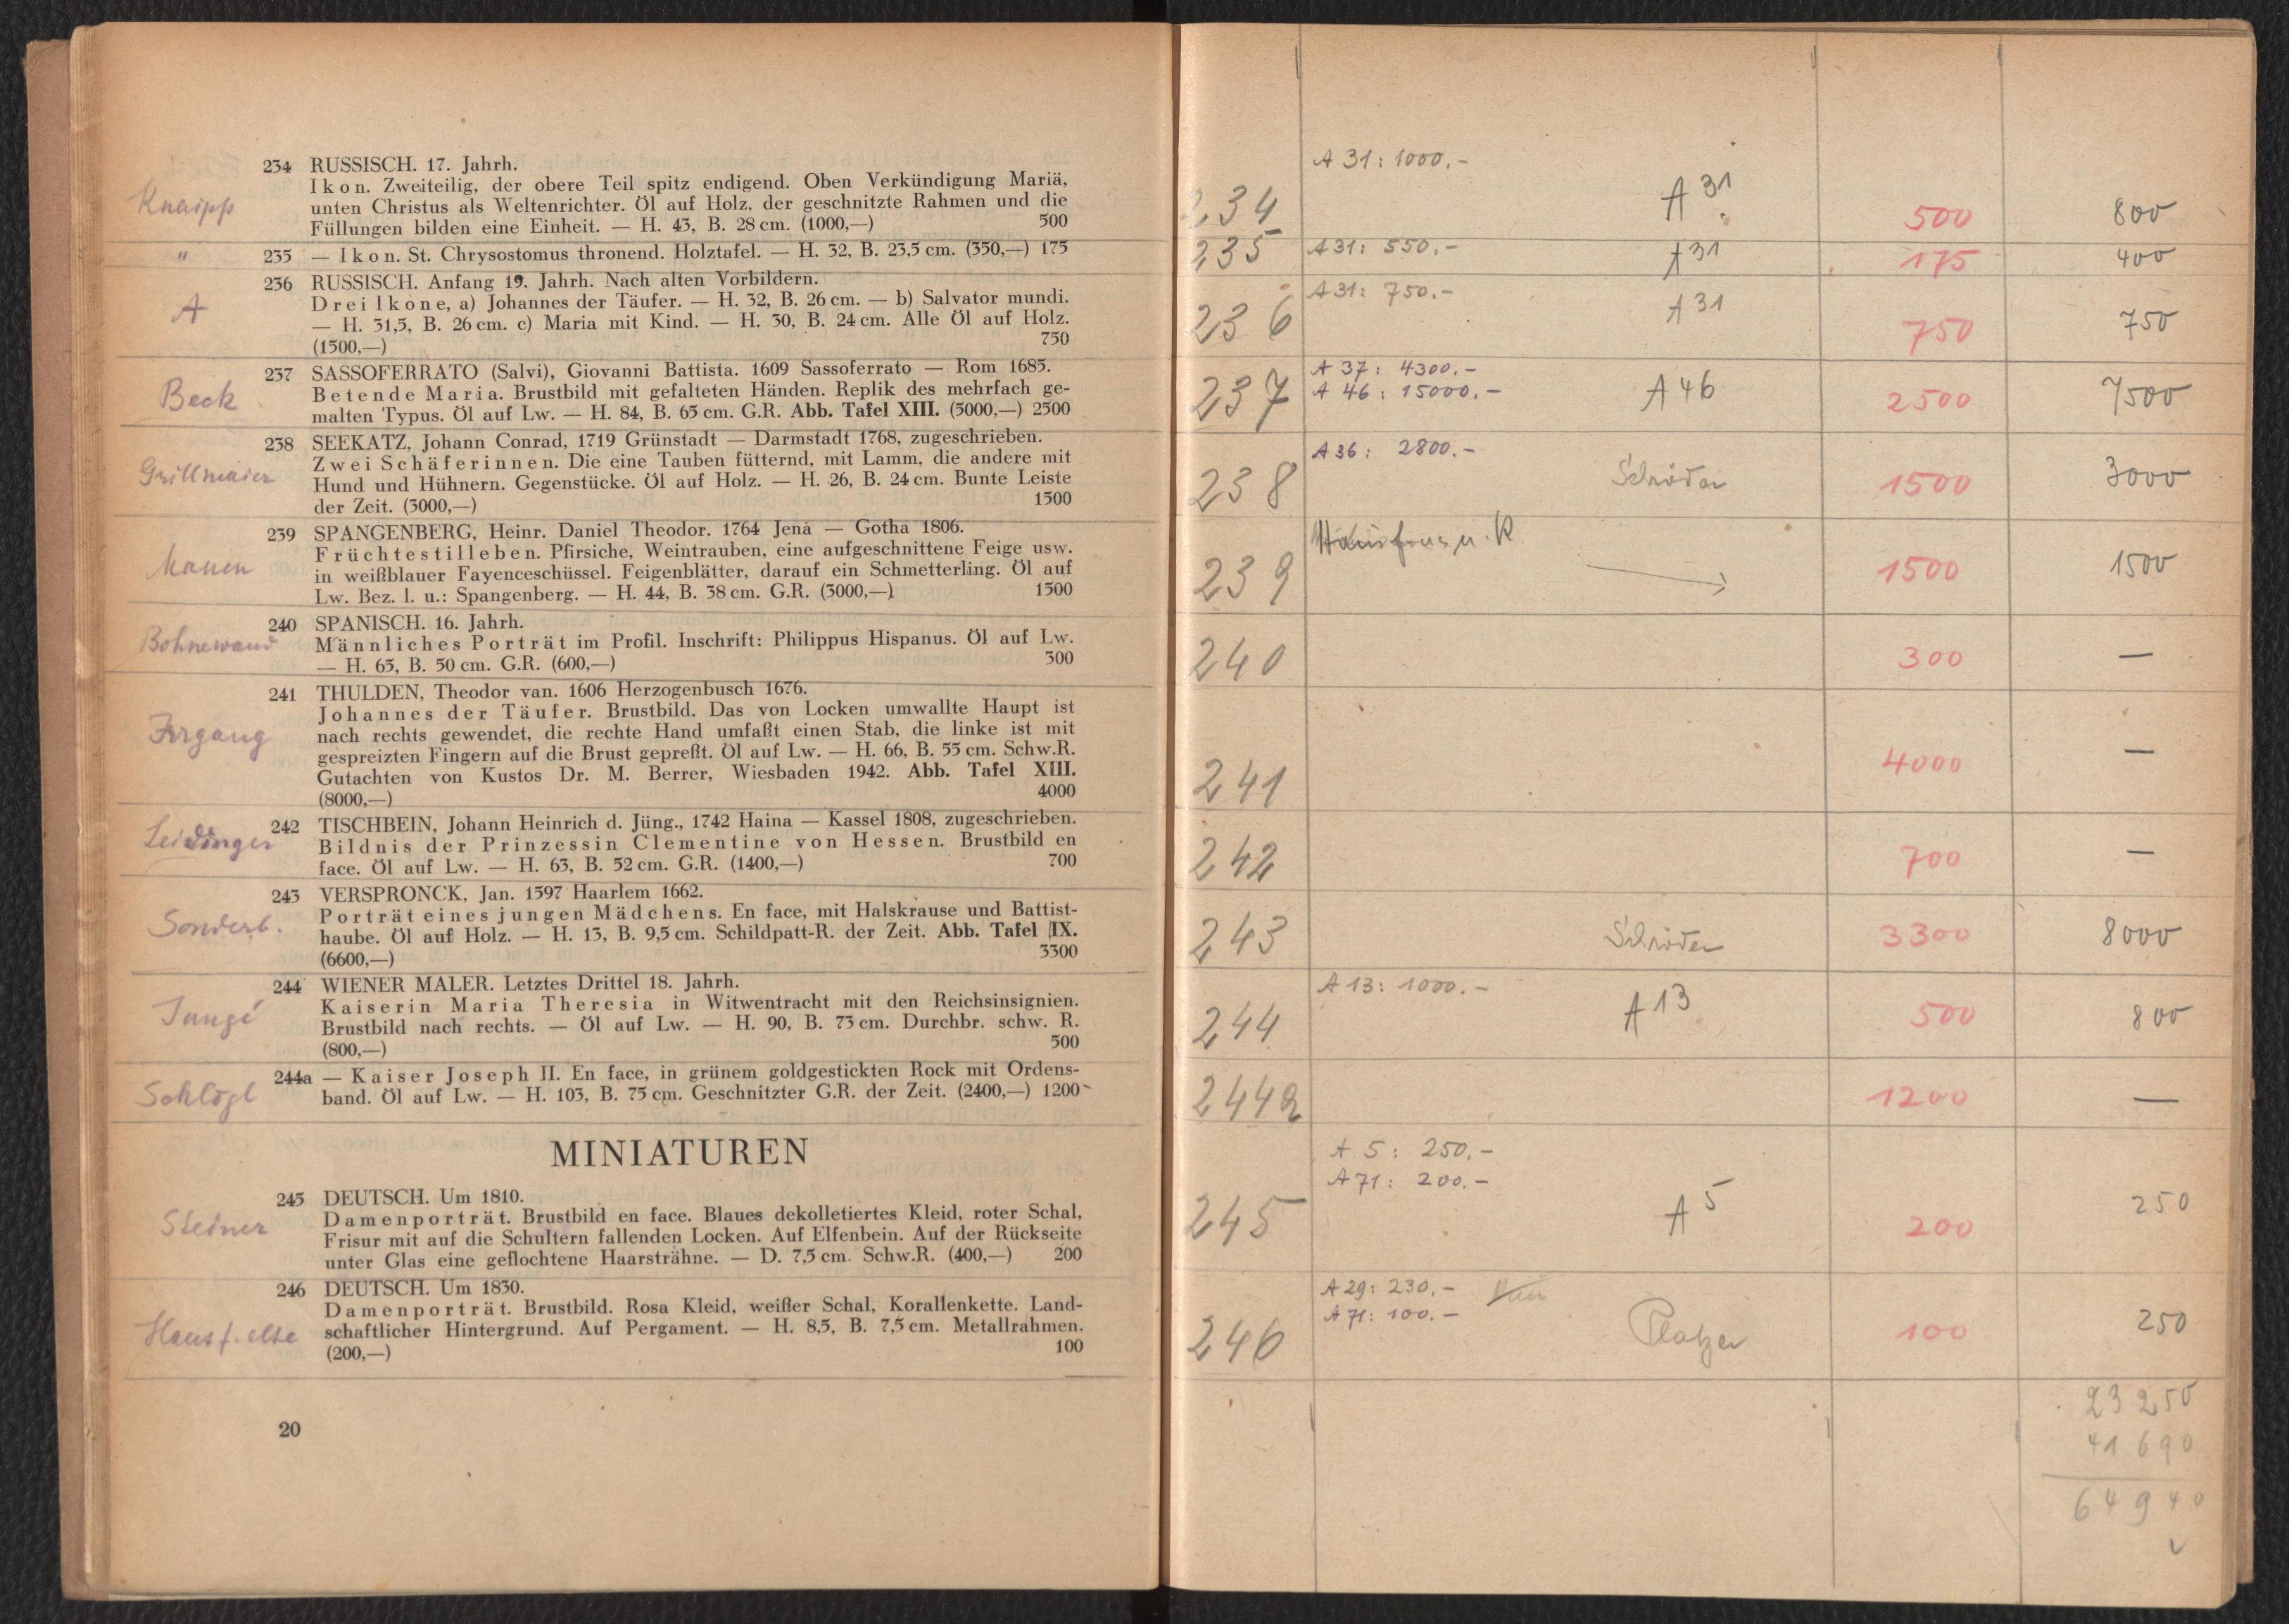 234 RUSSISCH. 17. Jahrh.
Ikon. Zweiteilig, der obere Teil spitz endigend. Oben Verkündigung Mariä,
Knaipp
unten Christus als Weltenrichter. Öl auf Holz, der geschnitzte Rahmen und die
Füllungen bilden eine Einheit. — H. 43, B. 28 cm. (1000,—) 500
" 235 — Ikon. St. Chrysostomus thronend. Holztafel. — H. 32, B. 23,5 cm. (350,—) 175
236 RUSSISCH. Anfang 19. Jahrh. Nach alten Vorbildern.
A
Drei Ikone, a) Johannes der Täufer. — H. 32, B. 26 cm. — b) Salvator mundi.
— H. 31,5, B. 26 cm. c) Maria mit Kind. — H. 30, B. 24 cm. Alle Öl auf Holz.
(1500,—) 750
237 SASSOFERRATO (Salvi), Giovanni Battista. 1609 Sassoferrato — Rom 1685.
Beck
Betende Maria. Brustbild mit gefalteten Händen. Replik des mehrfach ge-
malten Typus. Öl auf Lw. — H. 84, B. 65 cm. G.R. Abb. Tafel XIII. (5000,—) 2500
238 SEEKATZ, Johann Conrad, 1719 Grünstadt — Darmstadt 1768, zugeschrieben.
Zwei Schäferinnen. Die eine Tauben fütternd, mit Lamm, die andere mit
Grillmaier
Hund und Hühnern. Gegenstücke. Öl auf Holz. — H. 26, B. 24 cm. Bunte Leiste
der Zeit. (3000,—) 1500
239 SPANGENBERG, Heinr. Daniel Theodor. 1764 Jena — Gotha 1806.
Früchtestilleben. Pfirsiche, Weintrauben, eine aufgeschnittene Feige usw.
in weißblauer Fayenceschüssel. Feigenblätter, darauf ein Schmetterling. Öl auf
Lw. Bez. l. u.: Spangenberg. — H. 44, B. 38 cm. G.R. (3000,—) 1500
240 SPANISCH. 16. Jahrh.
Bohnewand
Männliches Porträt im Profil. Inschrift: Philippus Hispanus. Öl auf Lw.
— H. 65, B. 50 cm. G.R. (600,—) 300
241 THULDEN, Theodor van. 1606 Herzogenbusch 1676.
Johannes der Täufer. Brustbild. Das von Locken umwallte Haupt ist
Irrgang
nach rechts gewendet, die rechte Hand umfaßt einen Stab, die linke ist mit
gespreizten Fingern auf die Brust gepreßt. Öl auf Lw. — H. 66, B. 55 cm. Schw.R.
Gutachten von Kustos Dr. M. Berrer, Wiesbaden 1942. Abb. Tafel XIII.
(8000,—) 4000
242 TISCHBEIN, Johann Heinrich d. Jüng., 1742 Haina — Kassel 1808, zugeschrieben.
Leidinger
Bildnis der Prinzessin Clementine von Hessen. Brustbild en
face. Öl auf Lw. — H. 63, B. 52 cm. G.R. (1400,—) 700
243 VERSPRONCK, Jan. 1597 Haarlem 1662.
Sonderb.
Porträt eines jungen Mädchens. En face, mit Halskrause und Battist-
haube. Öl auf Holz. — H. 13, B. 9,5 cm. Schildpatt-R. der Zeit. Abb. Tafel IX.
(6600,—) 3300
244 WIENER MALER. Letztes Drittel 18. Jahrh.
Kaiserin Maria Theresia in Witwentracht mit den Reichsinsignien.
Brustbild nach rechts. — Öl auf Lw. — H. 90, B. 73 cm. Durchbr. schw. R.
(800,—) 500
244a — Kaiser Joseph II. En face, in grünem goldgestickten Rock mit Ordens-
Schlögl
band. Öl auf Lw. — H. 103, B. 75 cm. Geschnitzter G.R. der Zeit. (2400,—) 1200
MINIATUREN
245 DEUTSCH. Um 1810.
Steiner
Damenporträt. Brustbild en face. Blaues dekolletiertes Kleid, roter Schal,
Frisur mit auf die Schultern fallenden Locken. Auf Elfenbein. Auf der Rückseite
unter Glas eine geflochtene Haarsträhne. — D. 7,5 cm. Schw.R. (400,—) 200
246 DEUTSCH. Um 1830.
Damenporträt. Brustbild. Rosa Kleid, weißer Schal, Korallenkette. Land-
schaftlicher Hintergrund. Auf Pergament. — H. 8,5, B. 7,5 cm. Metallrahmen.
(200,—) 100
20
A 31: 1000.-
234 A 31 500 800
235 A 31: 550.- A 31 175 400
A 31: 750.-
236 A 31 750 750
A 37: 4300.-
A 46: 15000.-
237 A 46 2500 7500
A 36: 2800.-
238 Schröder 1500 3000
239 1500 1500
240 300 —
241 4000 —
242 700 —
243 Schröder 3300 8000
A 13: 1000.-
244 A 13 500 800
244a 1200 —
A 5: 250.-
A 71: 200.-
245 A 5 200 250
A 29: 230.-
A 71: 100.-
246 Platzer 100 250
23250
41690
64940